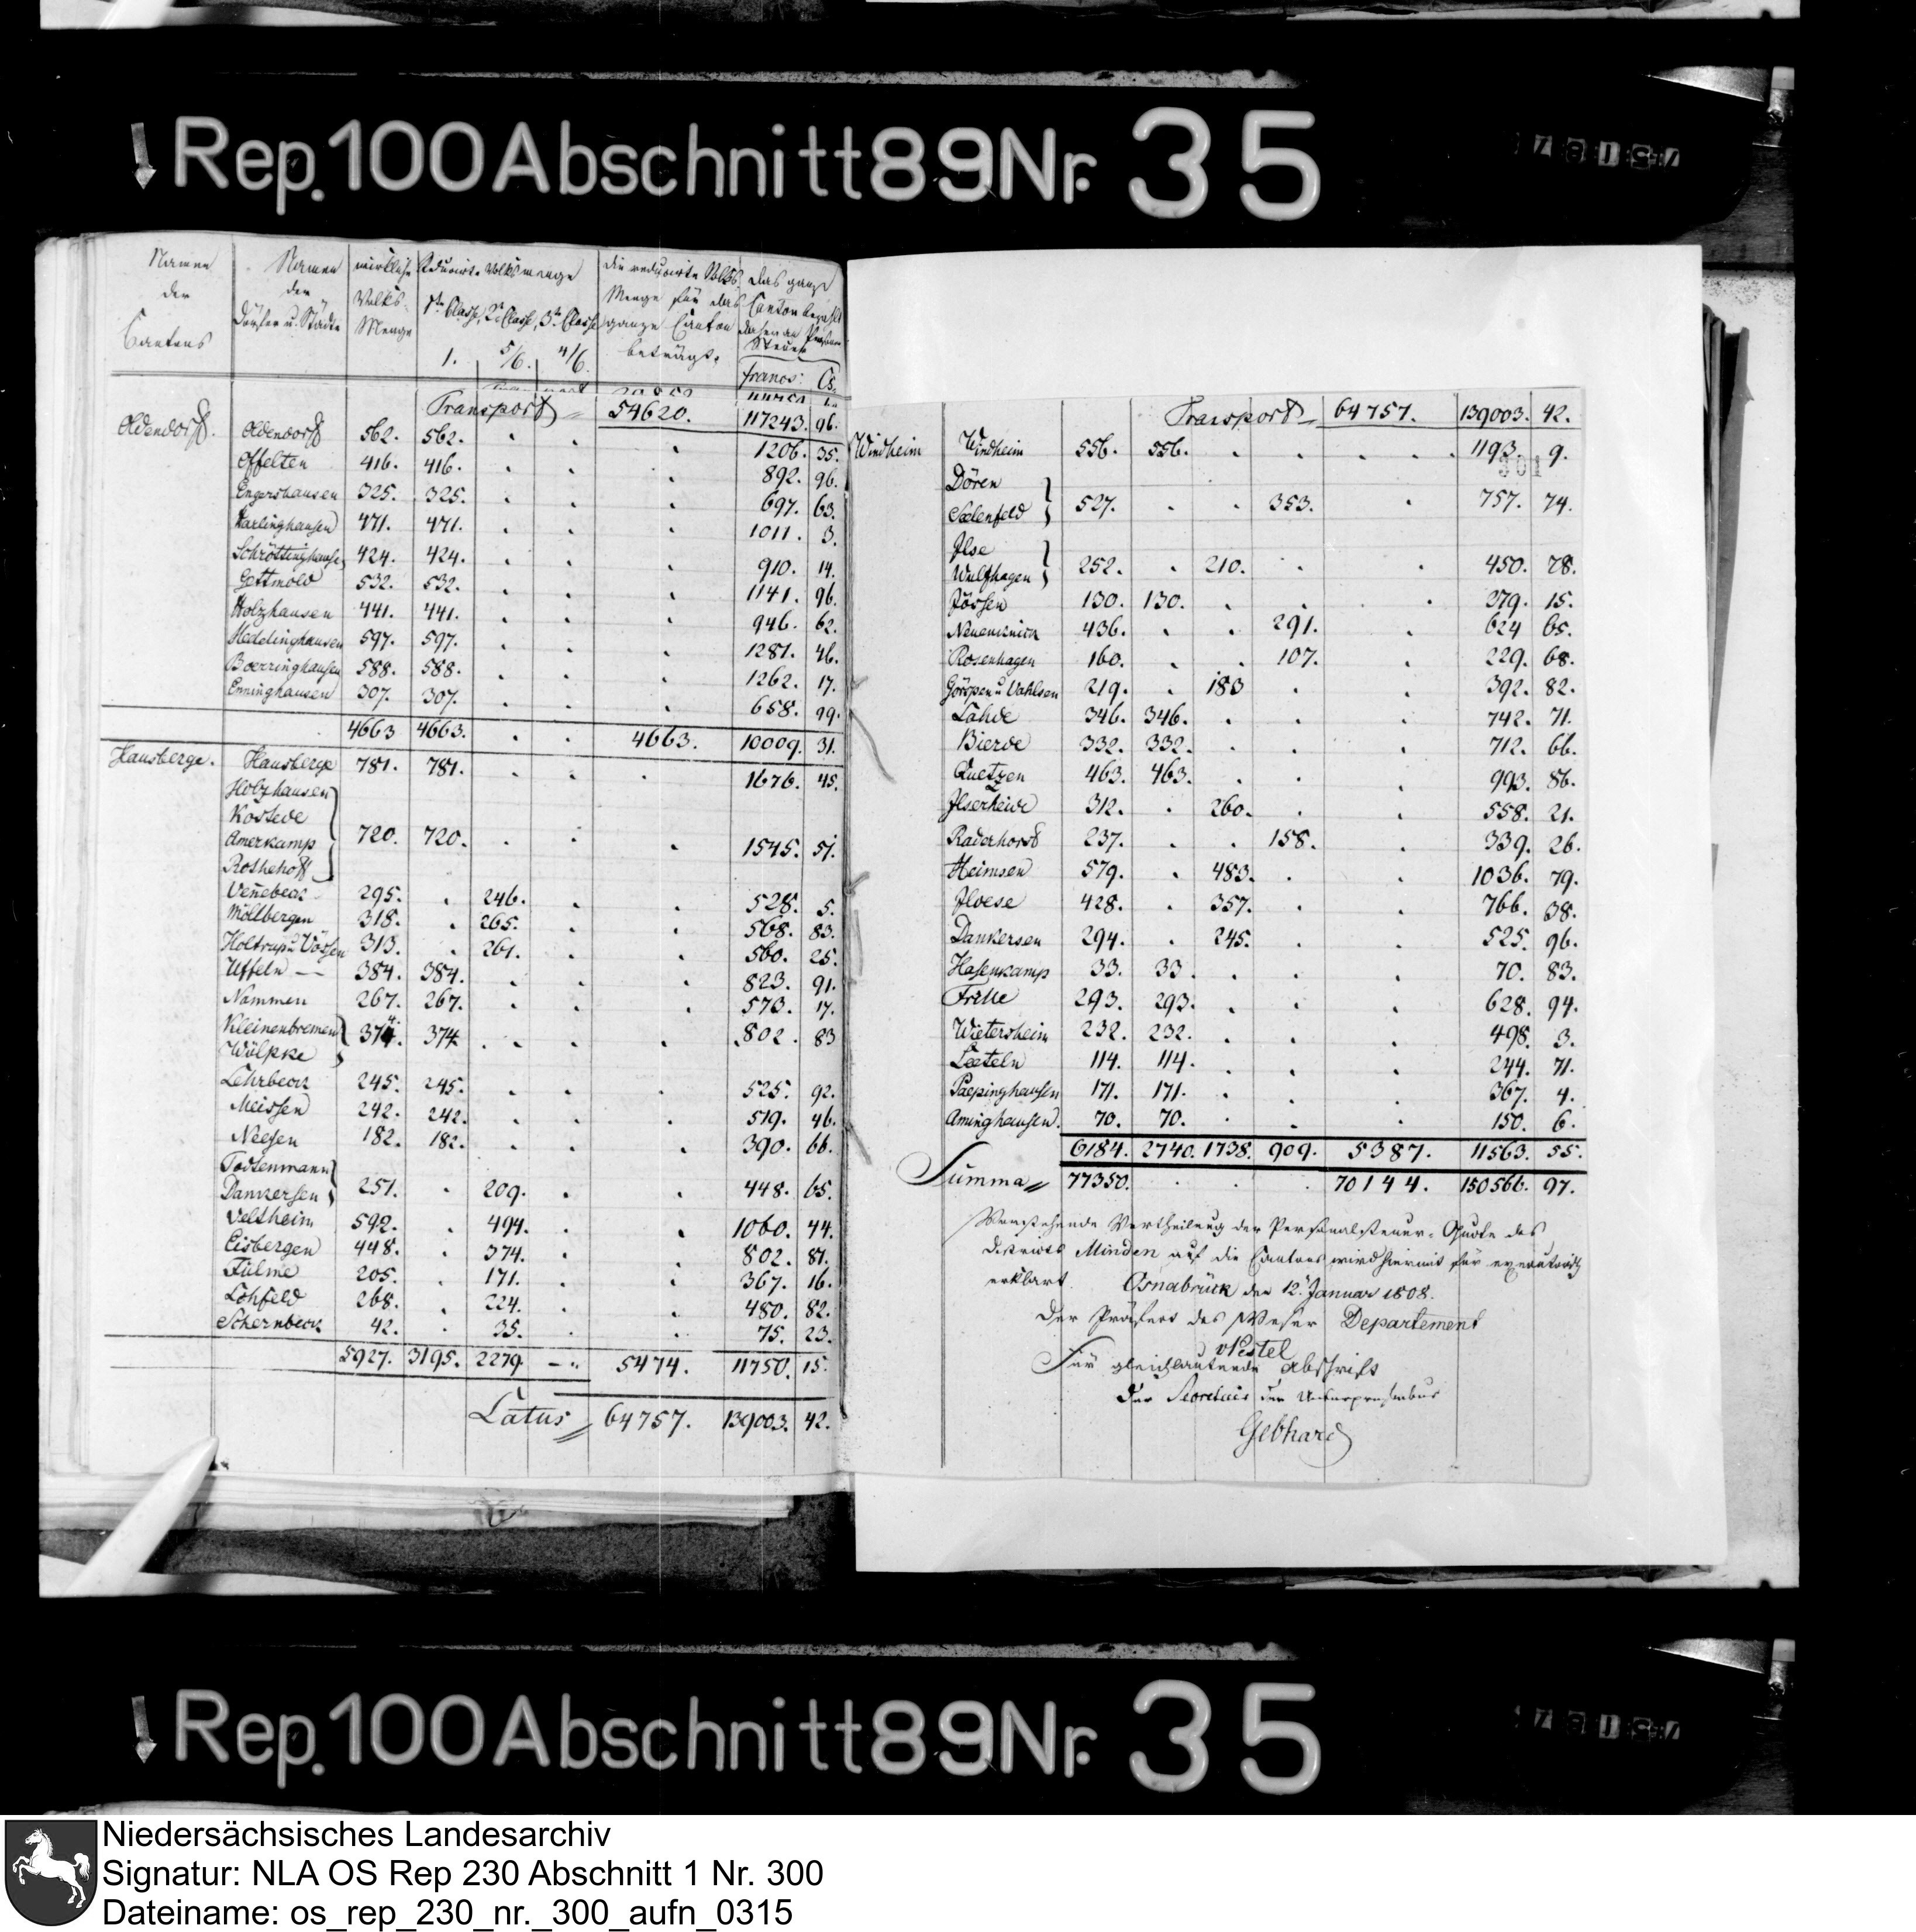 Rep. 100 Abschnitt 89 Nr. 35
Namen der Cantons
Namen der Dörfer u. Städte
wirkliche Volks-Menge
Reducirte Volksmenge
1te Classe, 2te Classe, 3te Classe
1. 5/6. 4/6.
die reducirte Volks Menge für das ganze Canton beträgt.
das ganze Canton bezahlt daher an Personal Steuer
francs: Cs.
Transport 54620. 117243. 96.
Oldendorff. Oldendorff 562. 562. 1206. 35.
Offelten 416. 416. 892. 96.
Engershausen 325. 325. 697. 63.
Harlinghausen 471. 471. 1011. 3.
Schröttinghause 424. 424. 910. 14.
Gettmold 532. 532. 1141. 96.
Holzhausen 441. 441. 946. 62.
Heddinghausen 597. 597. 1281. 46.
Boerringhausen 588. 588. 1262. 17.
Enninghausen 307. 307. 658. 99.
4663 4663. 4663. 10009. 31.
Hausberge. Hausberge 781. 781. 1676. 45.
Holzhausen
Kostede
Amerkamp 720. 720. 1545. 51.
Rothehoff
Veñebeck 295. 246. 528. 5.
Möllbergen 318. 265. 568. 83.
Holtrup u Vössen 313. 261. 560. 25.
Uffeln 384. 384. 823. 91.
Nammen 267. 267. 573. 17.
Kleinenbremen 374. 374 802. 83
Wülpke
Lehrbeck 245. 245. 525. 92.
Meissen 242. 242. 519. 46.
Neesen 182. 182. 390. 66.
Todtenmann
Dankersen 251. 209. 448. 65.
Veltheim 592. 494. 1060. 44.
Eisbergen 448. 374. 802. 81.
Fülme 205. 171. 367. 16.
Lohfeld 268. 224. 480. 82.
Schernbeck 42. 35. 75. 23.
5927. 3195. 2279 5474. 11750. 15.
Latus 64757. 139003. 42.
Transport 64757. 139003. 42.
Windheim Windheim 556. 556. 1193. 9.
301
Dören
Seelenfeld 527. 353. 757. 74.
Ilse
Wulfhagen 252. 210. 450. 78.
Jössen 130. 130. 279. 15.
Neuenknick 436. 291. 624 65.
Rosenhagen 160. 107. 229. 68.
Görspen u Vahlsen 219. 183 392. 82.
Lahde 346. 346. 742. 71.
Bierde 332. 332. 712. 66.
Quetzen 463. 463. 993. 86.
Ilserheide 312. 260. 558. 21.
Raderhorst 237. 158. 339. 26.
Heimsen 579. 483. 1036. 79.
Ilvese 428. 357. 766. 38.
Dankersen 294. 245. 525. 96.
Hasenkamp 33. 33. 70. 83.
Frille 293. 293. 628. 94.
Wietersheim 232. 232. 498. 3.
Leeteln 114. 114. 244. 71.
Paepinghausen 171. 171. 367. 4.
Aminghausen. 70. 70. 150. 6.
6184. 2740. 1738. 909. 5387. 11563. 55.
Summa 77350. 70144. 150566. 97.
Vorstehende Vertheilung der Personalsteuer-Quote des
Districts Minden auf die Cantons wird hiermit für executorisch
erklärt. Osnabrück den 12. Januar 1808.
Der Präfect des Weser Departement
Pestel
Für gleichlautende Abschrift
Der Secretair der Unterpräfectur
Gebhard
Rep. 100 Abschnitt 89 Nr. 35
Niedersächsisches Landesarchiv
Signatur: NLA OS Rep 230 Abschnitt 1 Nr. 300
Dateiname: os_rep_230_nr._300_aufn_0315